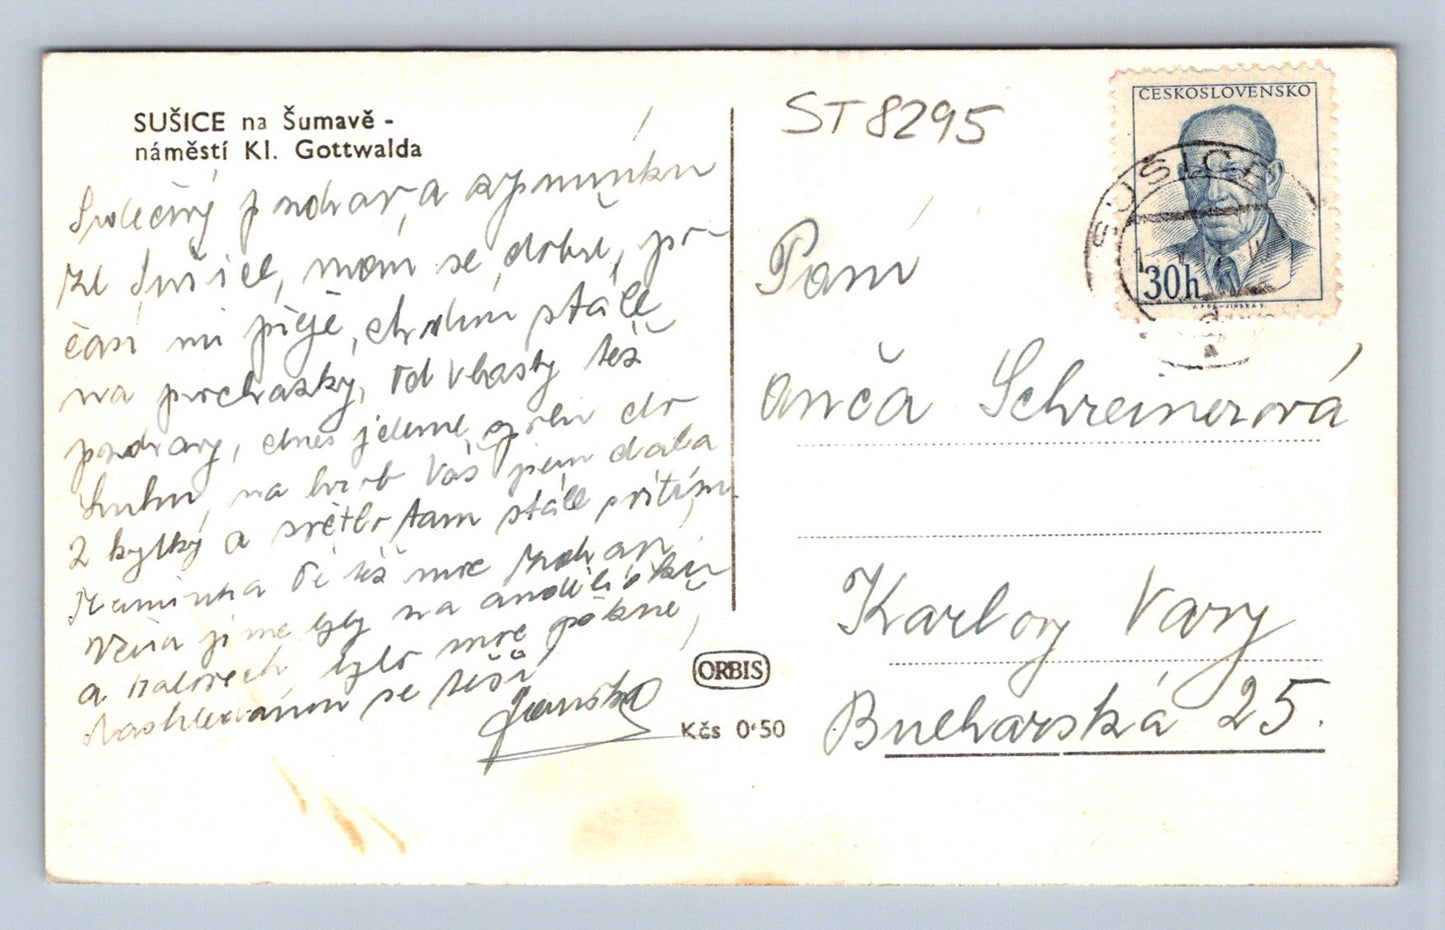 SUŠICE na Šumavě -
náměstí Kl. Gottwalda
Srdečný pozdrav, a vzpomínku
ze Sušice, mám se dobře, po-
časí mi přeje, chodím stále
na procházky, Od Vlasty též
pozdravy, dnes jedeme spolu do
na hrob Váš jsem dala
2 kytky a světlo tam stále svítí,
Maminka Ti též moc
jsme byly na
a bylo moc pěkně,
Nashledanou se těší
ORBIS
Kčs 0·50
ST8295
ČESKOSLOVENSKO
30h
SUŠICE
Paní
Anča Schreinerová
Karlovy Vary
Bucharská 25.